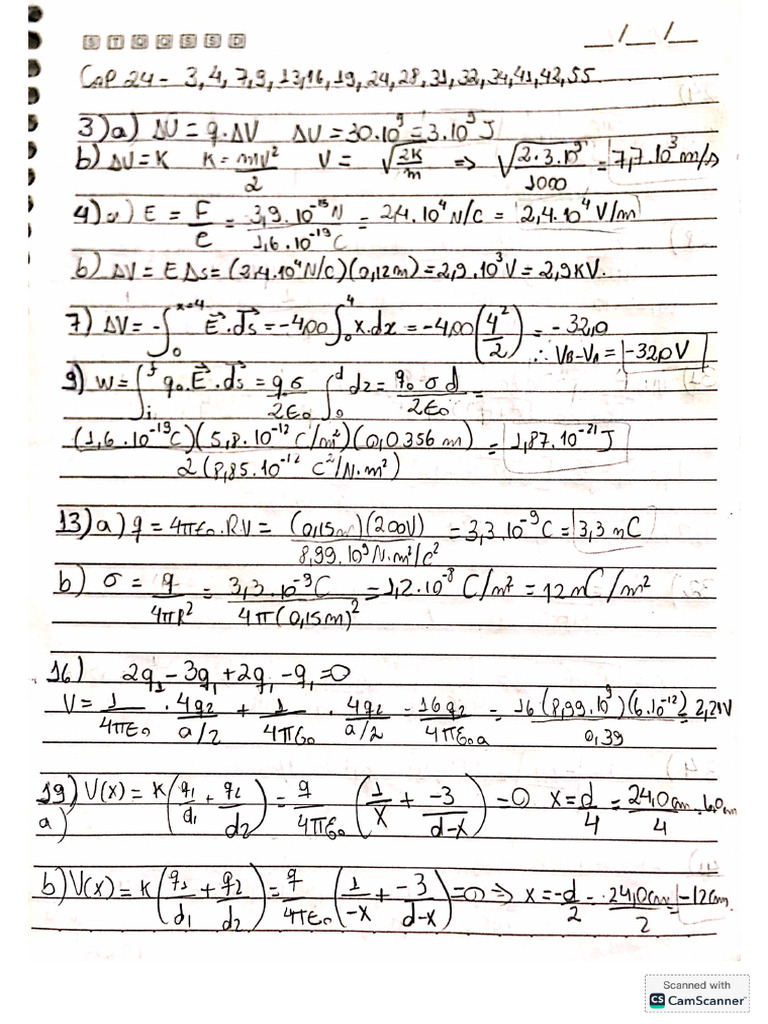 S T Q Q S S D
__/__/__
Cap 24 - 3,4,7,9,13,16,19,24,28,31,32,34,41,42,55
3)a) ΔU = q.ΔV ΔU = 30.10⁹ = 3.10⁹ J
b) ΔU = K K = mV²/2 V = √(2K/m) => √(2.3.10⁹/1000) = 7,7.10³ m/s
4)a) E = F/e = 3,9.10⁻¹⁵N/1,6.10⁻¹⁹C = 2,4.10⁴ N/C = 2,4.10⁴ V/m
b) ΔV = EΔs = (2,4.10⁴N/C)(0,12m) = 2,9.10³V = 2,9KV.
7) ΔV = -∫₀ˣ⁼⁴ E⃗.ds⃗ = -4,00 ∫₀⁴ x.dx = -4,00 (4²/2) = -32,0
∴ VB-VA = -32,0V
9) W = ∫ᵢᶠ q₀.E⃗.ds⃗ = qσ/2ε₀ ∫₀ᵈ dz = q₀σd/2ε₀ =
(1,6.10⁻¹⁹C)(5,8.10⁻¹²C/m²)(0,0356 m)/2(8,85.10⁻¹² C²/N.m²) = 1,87.10⁻²¹ J
13)a) q = 4πε₀.RV = (0,15m)(200V)/8,99.10⁹N.m²/C² = 3,3.10⁻⁹C = 3,3 nC
b) σ = q/4πR² = 3,3.10⁻⁹C/4π(0,15m)² = 1,2.10⁻⁸ C/m² = 12nC/m²
16) 2q₁-3q₁+2q₁-q₁=0
V = 1/4πε₀ . 4q₂/a/2 + 1/4πε₀ . 4q₂/a/2 = 16q₂/4πε₀a = 16(8,99.10⁹)(6.10⁻¹²)/0,39 = 2,21V
19) V(x) = K(q₁/d₁ + q₂/d₂) = q/4πε₀ (1/x + -3/d-x) = 0 x = d/4 = 24,0cm/4 . 6,0cm
a)
b) V(x) = K(q₁/d₁ + q₂/d₂) = q/4πε₀ (1/-x + -3/d-x) = 0 => x = -d/2 = -24,0cm/2 = -12cm.
Scanned with
CS CamScanner